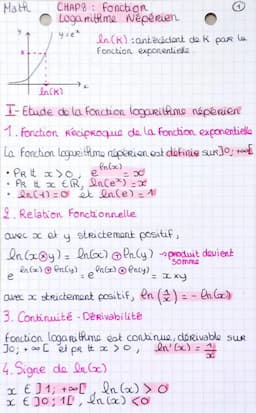 Math
CHAP8 : Fonction
Logarithme Népérien
①
y
y = eˣ
K
ln(K)
x
ln(K) : antécédent de K par la
fonction exponentielle
I- Etude de la fonction logarithme népérien
1. Fonction réciproque de la fonction exponentielle
La fonction logarithme népérien est définie sur ]0; +∞[
• Pr tt x > 0, e^ln(x) = x
• Pr tt x ∈ ℝ, ln(eˣ) = x
• ln(1) = 0 et ln(e) = 1
2. Relation Fonctionnelle
avec x et y strictement positif,
ln(x⊗y) = ln(x) ⊕ ln(y) → produit devient
somme
e^(ln(x) ⊕ ln(y)) = e^ln(x) ⊕ ln(y) = x × y
avec x strictement positif, ln(1/x) = - ln(x)
3. Continuité - Dérivabilité
Fonction logarithme est continue, dérivable sur
]0; +∞[ et pr tt x > 0, ln'(x) = 1/x
4. Signe de ln(x)
x ∈ ]1; +∞[, ln(x) > 0
x ∈ ]0; 1[, ln(x) < 0